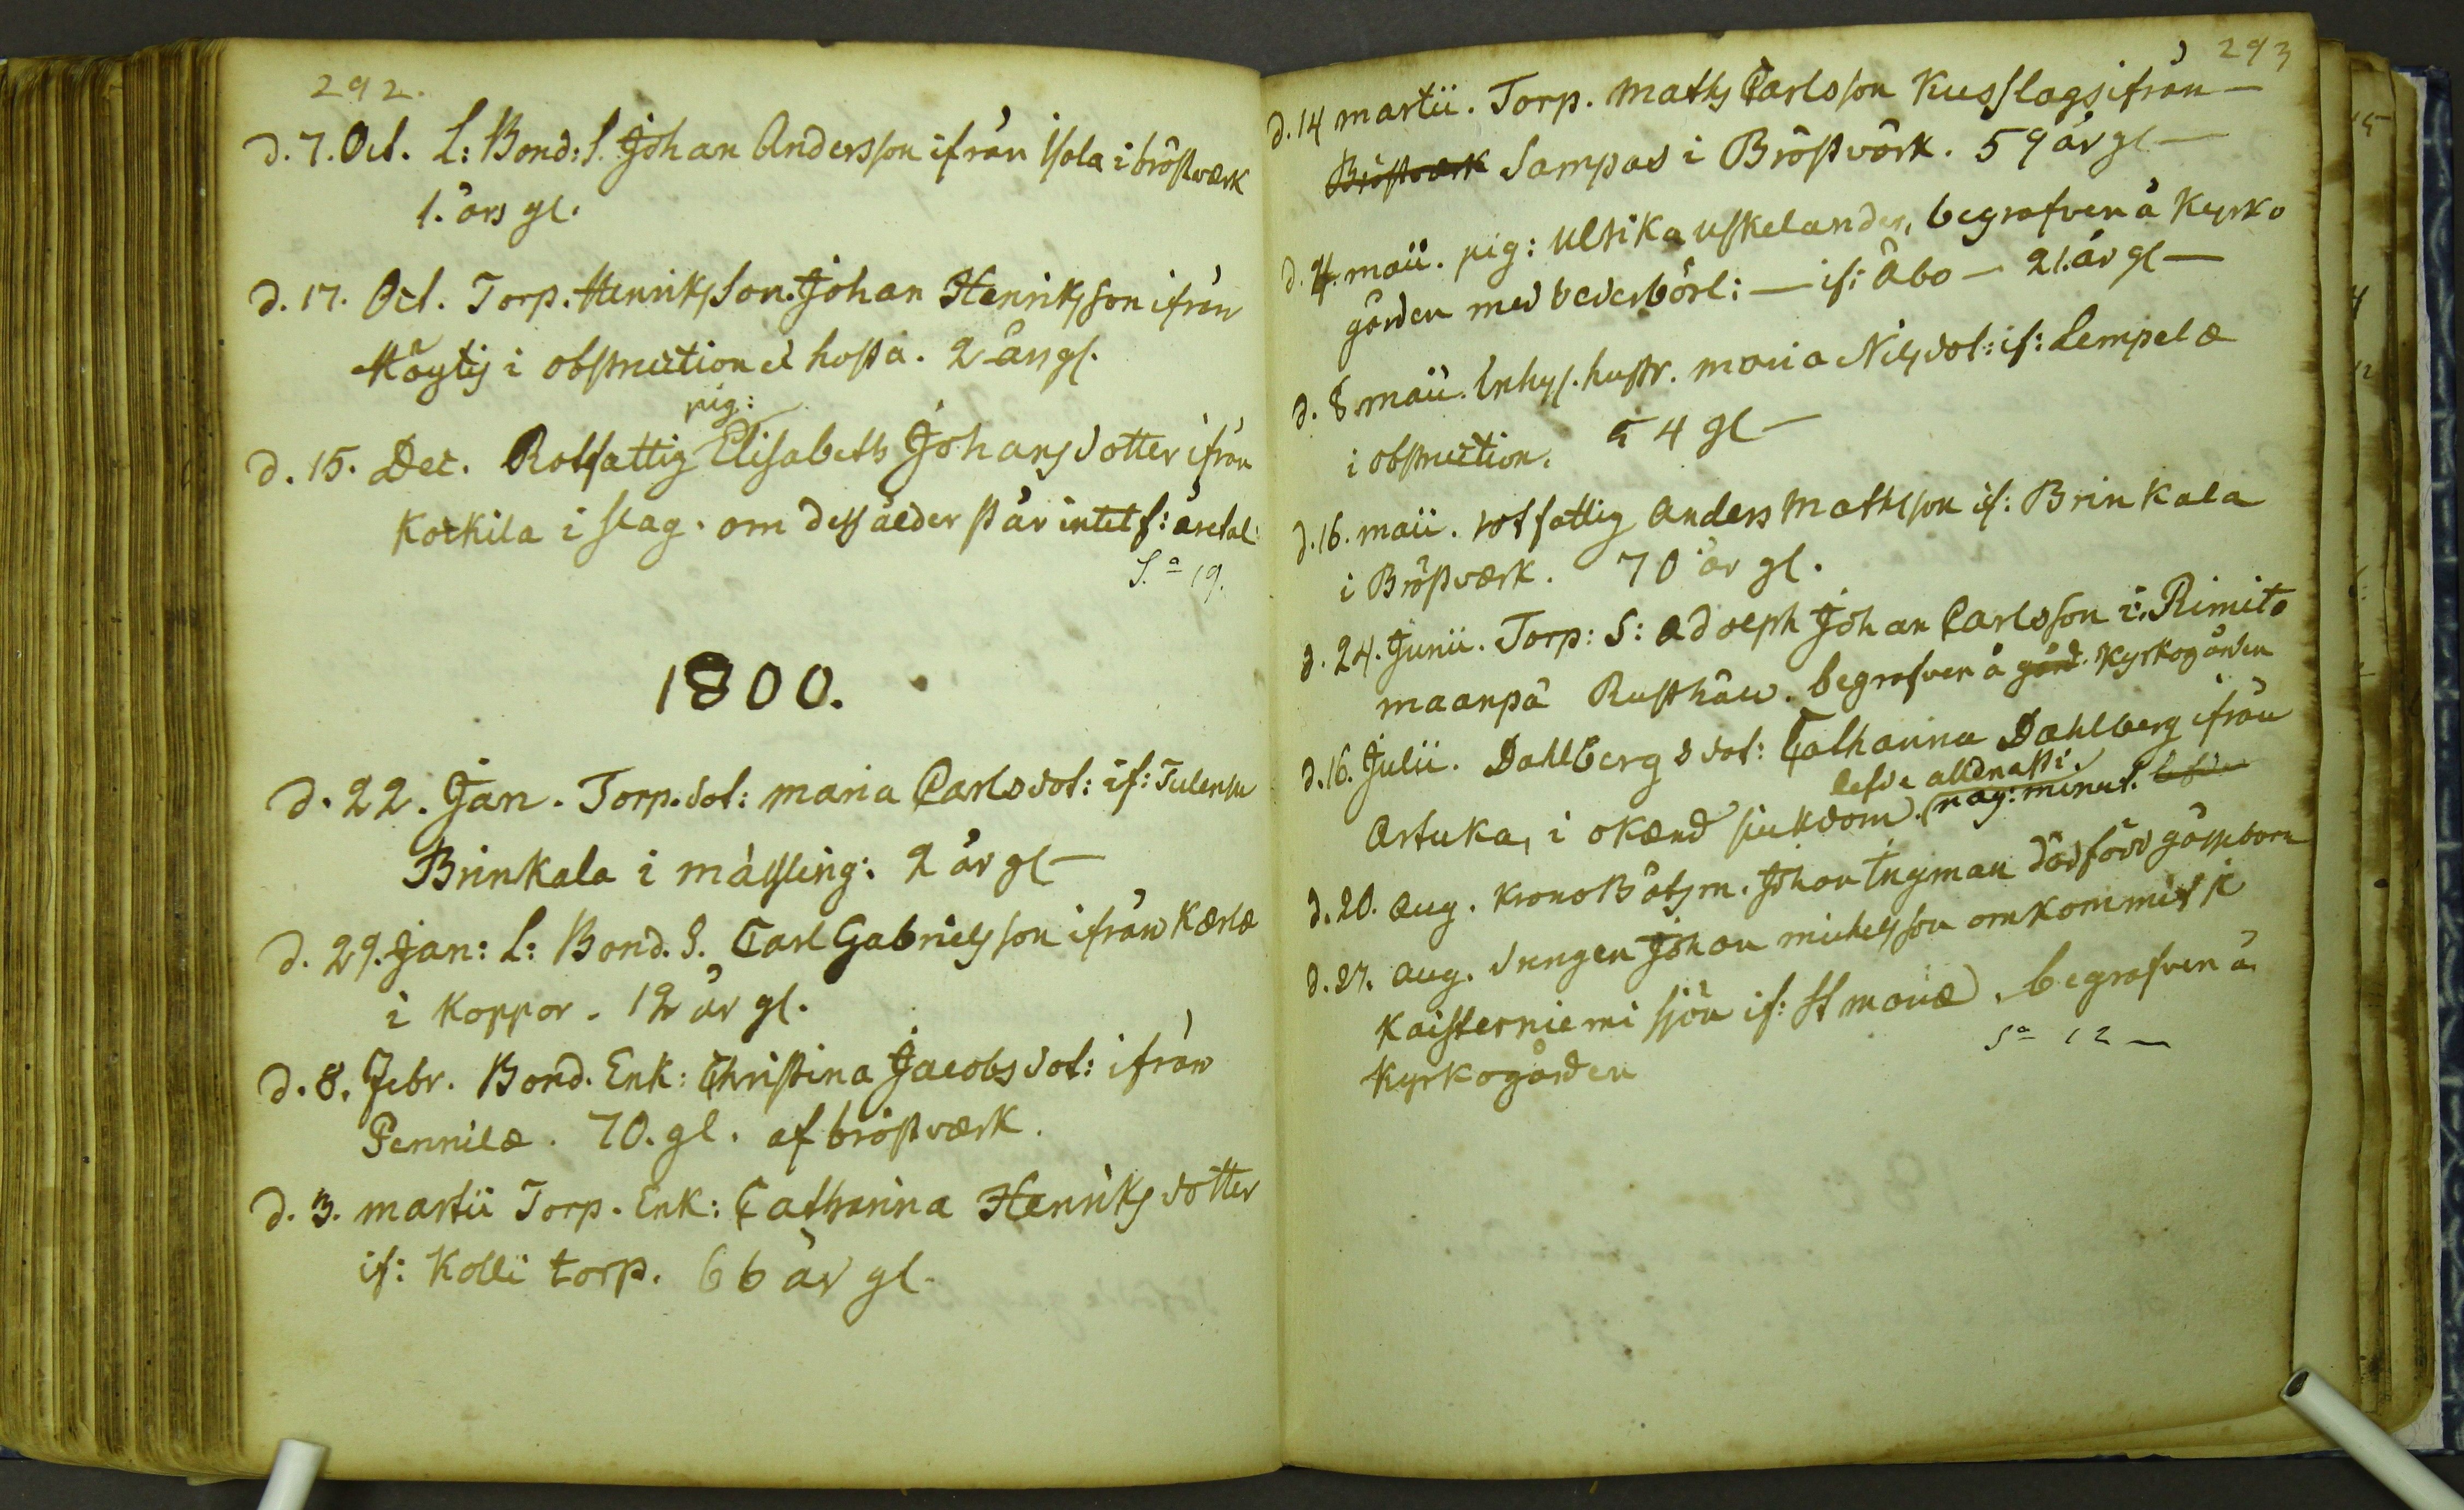 292.
d. 7. Oct. L: Bond: S. Johan Andersson ifrån Isola i bröstwærk
1. års gl.
d. 17. Oct. Torp. Henrikssson. Johan Henriksson ifrån
i obstruction et hosta. 2 års gl.
pig:
d. 15. Dec. Rotfattig Elisabeth Johansdotter ifrån
Kockila i slag. om dess ålder står intet f: åretal:
S.a 19.
1800.
d. 22. Jan. Torp. dot: maria Carlsdot: if:
Brinkala i mässling: 2 år gl—
d. 29. Jan: L: Bond. S. Carl Gabrielsson ifrån Kærlæ
i Koppor. 12 år gl.
d. 8. Febr. Bond. Enk: Christina Jacobsdot: ifrån
Pennilæ. 70. gl. af bröstværk.
d. 3. martii Torp. Enk: Catharina Henriksdotter
if: Kolli torp. 66 år gl.
293
d. 14 martii. Torp. Maths Carlsson Kusslagsifrån—
Bröstværk Sampas i Bröstvärk. 59 år gl—
d. 4. maii. pig: Ulrika Uskelander, begrafven å Kyrko
gården med vederbörl:— if: Åbo— 21. år gl—
d. 8 maii. Inhys. hustr. maria Nilsdot: if: Lempelæ
i obstruction. 54 gl—
d. 16. maii. rotfattig Anders Mathsson if: Brinkala
i Bröstværk. 70 år gl.
d. 24. Junii. Torp: S: Adolph Johan Carlsson i: Rimito
maanpä Rusthåll. begrafven å gård. Kyrkogården
d. 16. Julii. Dahlbergs dot: Catharina Dahlberg ifrån
lefde allenast
Artuka, i okænd siukdom. någ: minut. lefde
d. 20. Aug. Krono Båtsm. Johan Ingman dödfödd gossebarn
d. 27. Aug. Drengen Johan michelsson omkommit i
Kaisterniemi sjön if: St mariæ. begrafven å
Kyrkogården
S.a 12—